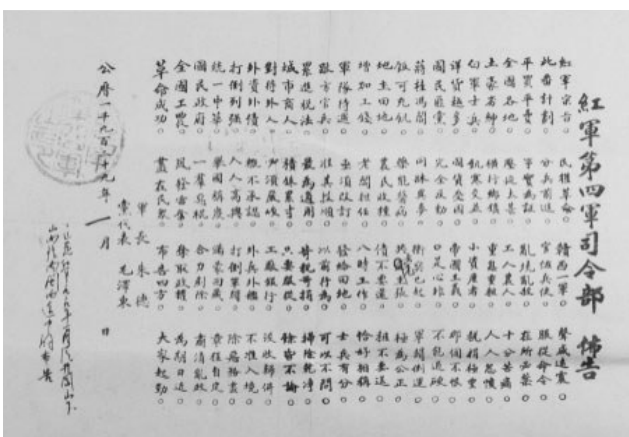 紅軍第四軍司令部 佈告
紅軍宗旨。民權革命。贛西一軍。聲威遠震。
此番計劃。分兵前進。官佐兵伕。服從命令。
平買平賣。事實為証。亂燒亂殺。在所必禁。
全國各地。壓迫太甚。工人農人。十分苦痛。
土豪劣紳。橫行鄉鎮。重息重租。人人怨憤。
白軍士兵。飢寒交並。小資產者。稅捐極重。
洋貨越多。國貨受困。帝國主義。那個不恨。
國民匪黨。完全反動。口是心非。不能過硬。
蔣桂馮閻。同牀異夢。衝突已起。軍閥倒運。
飯可充飢。藥能醫病。共黨主張。極為公正。
地主田地。農民收種。債不要還。租不要送。
增加工錢。老闆担任。八時工作。恰好相稱。
軍隊待遇。亟須改訂。發給田地。士兵有分。
敵方官兵。准其投順。以前行為。可以不問。
累進稅法。最為適用。苛稅苛捐。掃除乾凈。
城市商人。積銖累寸。只要服從。餘皆不論。
對待外人。必須嚴峻。工廠銀行。沒收歸併。
外資外債。概不承認。外兵外艦。不准入境。
打倒列強。人人高興。打倒軍閥。除惡務盡。
統一中華。舉國稱慶。滿蒙回藏。章程自定。
國民政府。一羣惡棍。合力剷除。肅清亂政。
全國工農。風發雷奮。奪取政權。為期日近。
革命成功。盡在民眾。布告四方。大家起勁。
軍長 朱德
黨代表 毛澤東
公曆一千九百二十九年一月 日